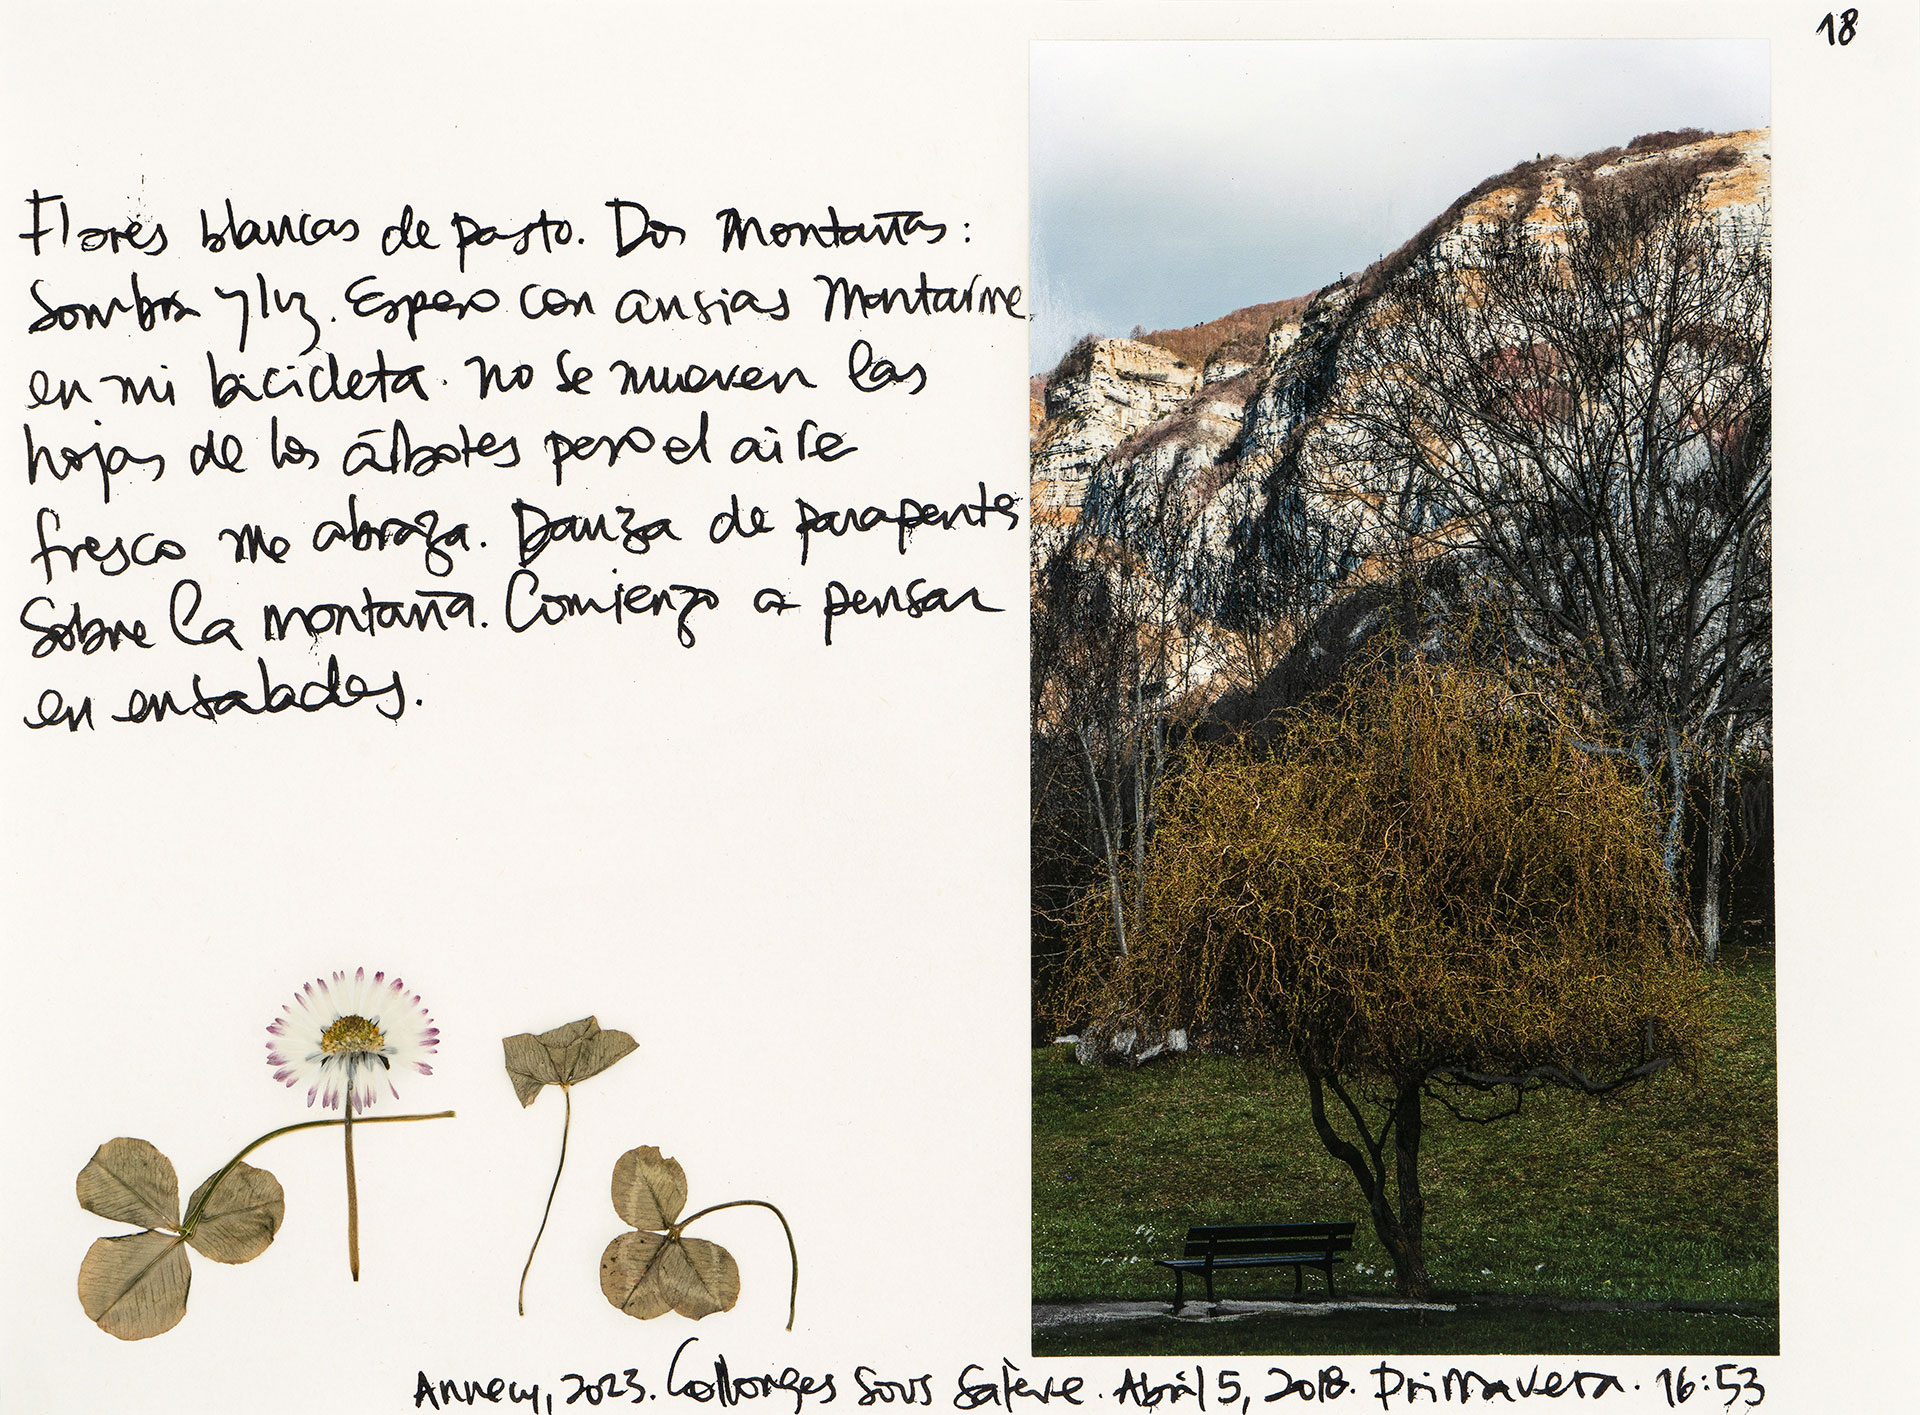 18
Flores blancas de pasto. Dos montañas:
Sombra y luz. Espero con ansias montarme
en mi bicicleta. No se mueven las
hojas de los árboles pero el aire
fresco me abraza. Danza de parapentes
sobre la montaña. Comienzo a pensar
en ensaladas.
Annecy, 2023. Collonges Sous Salève. Abril 5, 2018. Primavera. 16:53